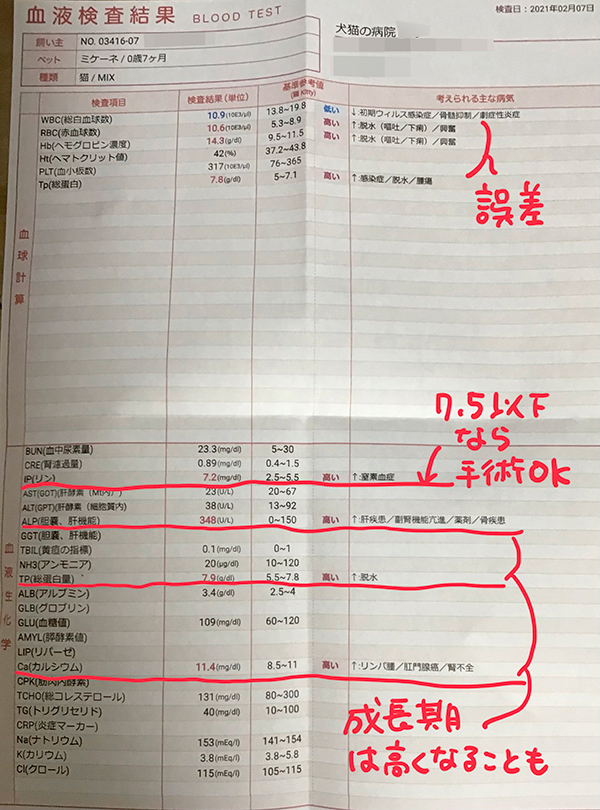 血液検査結果 BLOOD TEST 検査日：2021年02月07日
飼い主 NO. 03416-07 犬猫の病院
ペット ミケーネ / 0歳7ヶ月
種類 猫 / MIX
検査項目 検査結果(単位) 基準参考値 考えられる主な病気
(猫 Kitty)
WBC(総白血球数) 10.9(10E3/μl) 13.8~19.8 低い ↓:初期ウィルス感染症／骨髄抑制／劇症性炎症
RBC(赤血球数) 10.6(10E3/μl) 5.3~8.9 高い ↑:脱水（嘔吐／下痢）／興奮
Hb(ヘモグロビン濃度) 14.3(g/dl) 9.5~11.5 高い ↑:脱水（嘔吐／下痢）／興奮
Ht(ヘマトクリット値) 42(%) 37.2~43.8
PLT(血小板数) 317(10E3/μl) 76~365
Tp(総蛋白) 7.8(g/dl) 5~7.1 高い ↑:感染症／脱水／腫瘍
誤差
血球計算
7.5以下
なら
手術OK
BUN(血中尿素量) 23.3(mg/dl) 5~30
CRE(腎濾過量) 0.89(mg/dl) 0.4~1.5
IP(リン) 7.2(mg/dl) 2.5~5.5 高い ↑:窒素血症
AST(GOT)(肝酵素（Mt内）) 23(U/L) 20~67
ALT(GPT)(肝酵素（細胞質内) 38(U/L) 13~92
ALP(胆嚢、肝機能) 348(U/L) 0~150 高い ↑:肝疾患／副腎機能亢進／薬剤／骨疾患
GGT(胆嚢、肝機能)
TBIL(黄疸の指標) 0.1(mg/dl) 0~1
NH3(アンモニア) 20(μg/dl) 10~120
TP(総蛋白量) 7.9(g/dl) 5.5~7.8 高い ↑:脱水
ALB(アルブミン) 3.4(g/dl) 2.5~4
GLB(グロブリン)
GLU(血糖値) 109(mg/dl) 60~120
AMYL(膵酵素値)
LIP(リパーゼ)
Ca(カルシウム) 11.4(mg/dl) 8.5~11 高い ↑:リンパ腫／肛門腺癌／腎不全
CPK(筋肉内酵素)
TCHO(総コレステロール) 131(mg/dl) 80~300
TG(トリグリセリド) 40(mg/dl) 10~100
CRP(炎症マーカー)
Na(ナトリウム) 153(mEq/l) 141~154
K(カリウム) 3.8(mEq/l) 3.8~5.8
Cl(クロール) 115(mEq/l) 105~115
血液生化学
成長期
は高くなることも